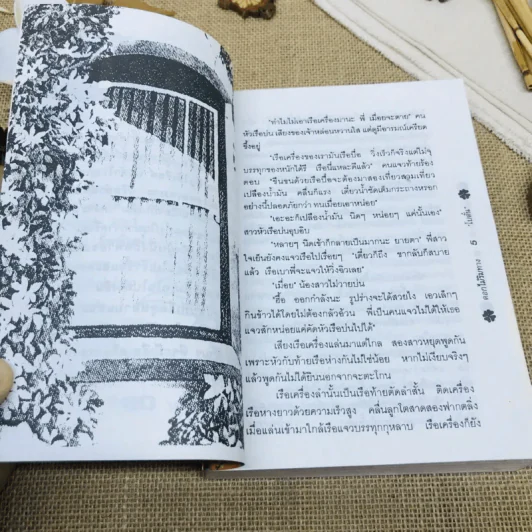 "ทำไมไม่เอาเรือเครื่องมานะ พี่ เมื่อยจะตาย" คน
หัวเรือบ่น เสียงของเจ้าหล่อนหวานใส แต่ดูมีอารมณ์เครียด
ขึ้งอยู่
"เรือเครื่องของเรามันเรือบื๋อ วิ่งเร็วก็จริงแต่ไม่จุ
บรรทุกของหนักได้รึ เรือนี่แหละดีแล้ว" คนแจวท้ายร้อง
ตอบ "ขืนขนด้วยเรือบื๋อจะต้องมาสองเที่ยวสามเที่ยว
เปลืองน้ำมัน คลื่นก็แรง เดี๋ยวน้ำซัดเติมกระถางหรอก
อย่างนี้ปลอดภัยกว่า ทนเมื่อยเอาหน่อย"
"เอะอะก็เปลืองน้ำมัน นิดๆ หน่อยๆ แค่นั้นเอง"
สาวหัวเรือบ่นอุบอิบ
"หลายๆ นิดเข้าก็กลายเป็นมากนะ ยายตา" พี่สาว
ใจเย็นยังคงแจวเรือไปเรื่อยๆ "เดี๋ยวก็ถึง ขากลับก็สบาย
แล้ว เรือเบาพี่จะแจวให้วิ่งฉิวเลย"
"เมื่อย" น้องสาวไม่วายบ่น
"ฮื้อ ออกกำลังนะ รูปร่างจะได้สวยไง เอวเล็กๆ
กินข้าวได้โดยไม่ต้องกลัวอ้วน พี่เป็นคนแจวไม่ได้ให้เธอ
แจวสักหน่อยแค่คัดหัวเรือบ่นไปได้"
เสียงเรือเครื่องแล่นมาแต่ไกล สองสาวหยุดพูดกัน
เพราะหัวกับท้ายเรือห่างกันไม่ใช่น้อย หากไม่เงียบจริงๆ
แล้วพูดกันไม่ได้ยินนอกจากจะตะโกน
เรือเครื่องลำนั้นเป็นเรือท้ายตัดลำสั้น ติดเครื่อง
เรือหางยาวด้วยความเร็วสูง คลื่นลูกโตสาดสองฟากตลิ่ง
เมื่อแล่นเข้ามาใกล้เรือแจวบรรทุกกุหลาบ เรือเครื่องก็ยัง
ดอกไม้ริมทาง
5